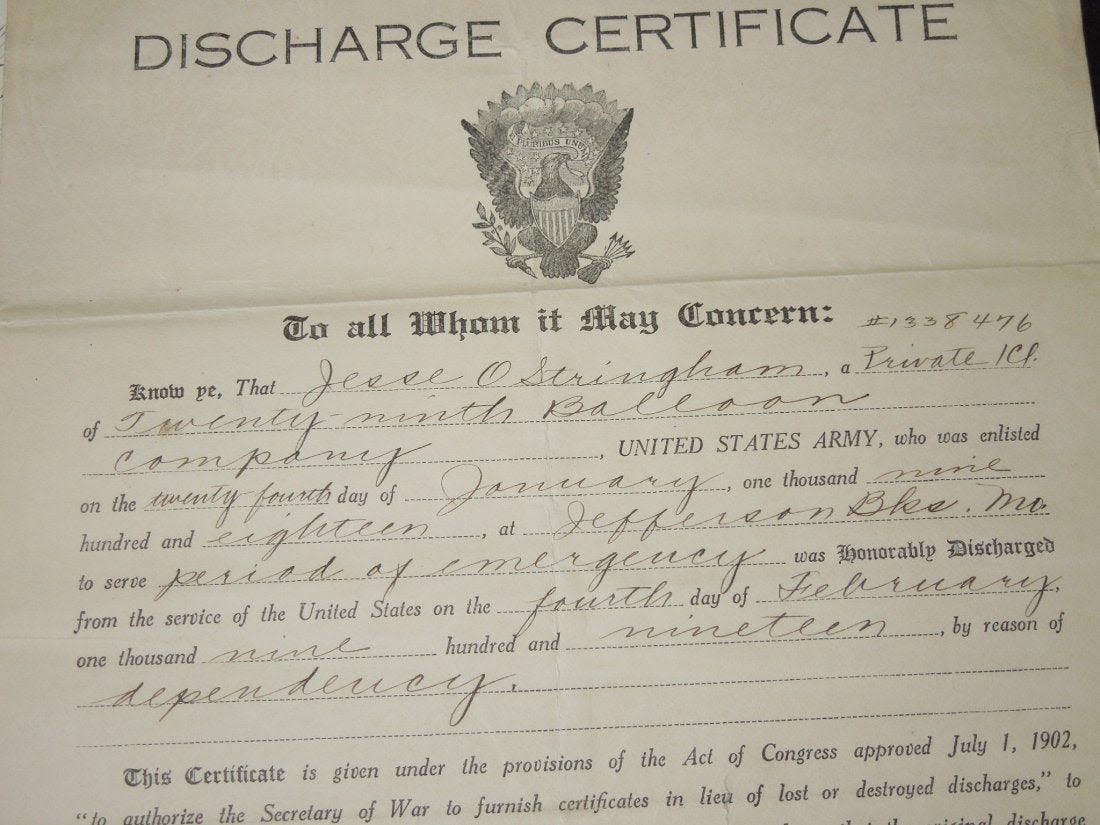 DISCHARGE CERTIFICATE
E PLURIBUS UNUM
To all Whom it May Concern: #1338476
Know ye, That Jesse O Stringham, a Private 1Cl.
of Twenty-ninth Balloon
Company, UNITED STATES ARMY, who was enlisted
on the twenty fourth day of January, one thousand nine
hundred and eighteen, at Jefferson Bks. Mo.
to serve period of emergency was Honorably Discharged
from the service of the United States on the fourth day of February,
one thousand nine hundred and nineteen, by reason of
dependency.
This Certificate is given under the provisions of the Act of Congress approved July 1, 1902,
"to authorize the Secretary of War to furnish certificates in lieu of lost or destroyed discharges," to
that the original discharge